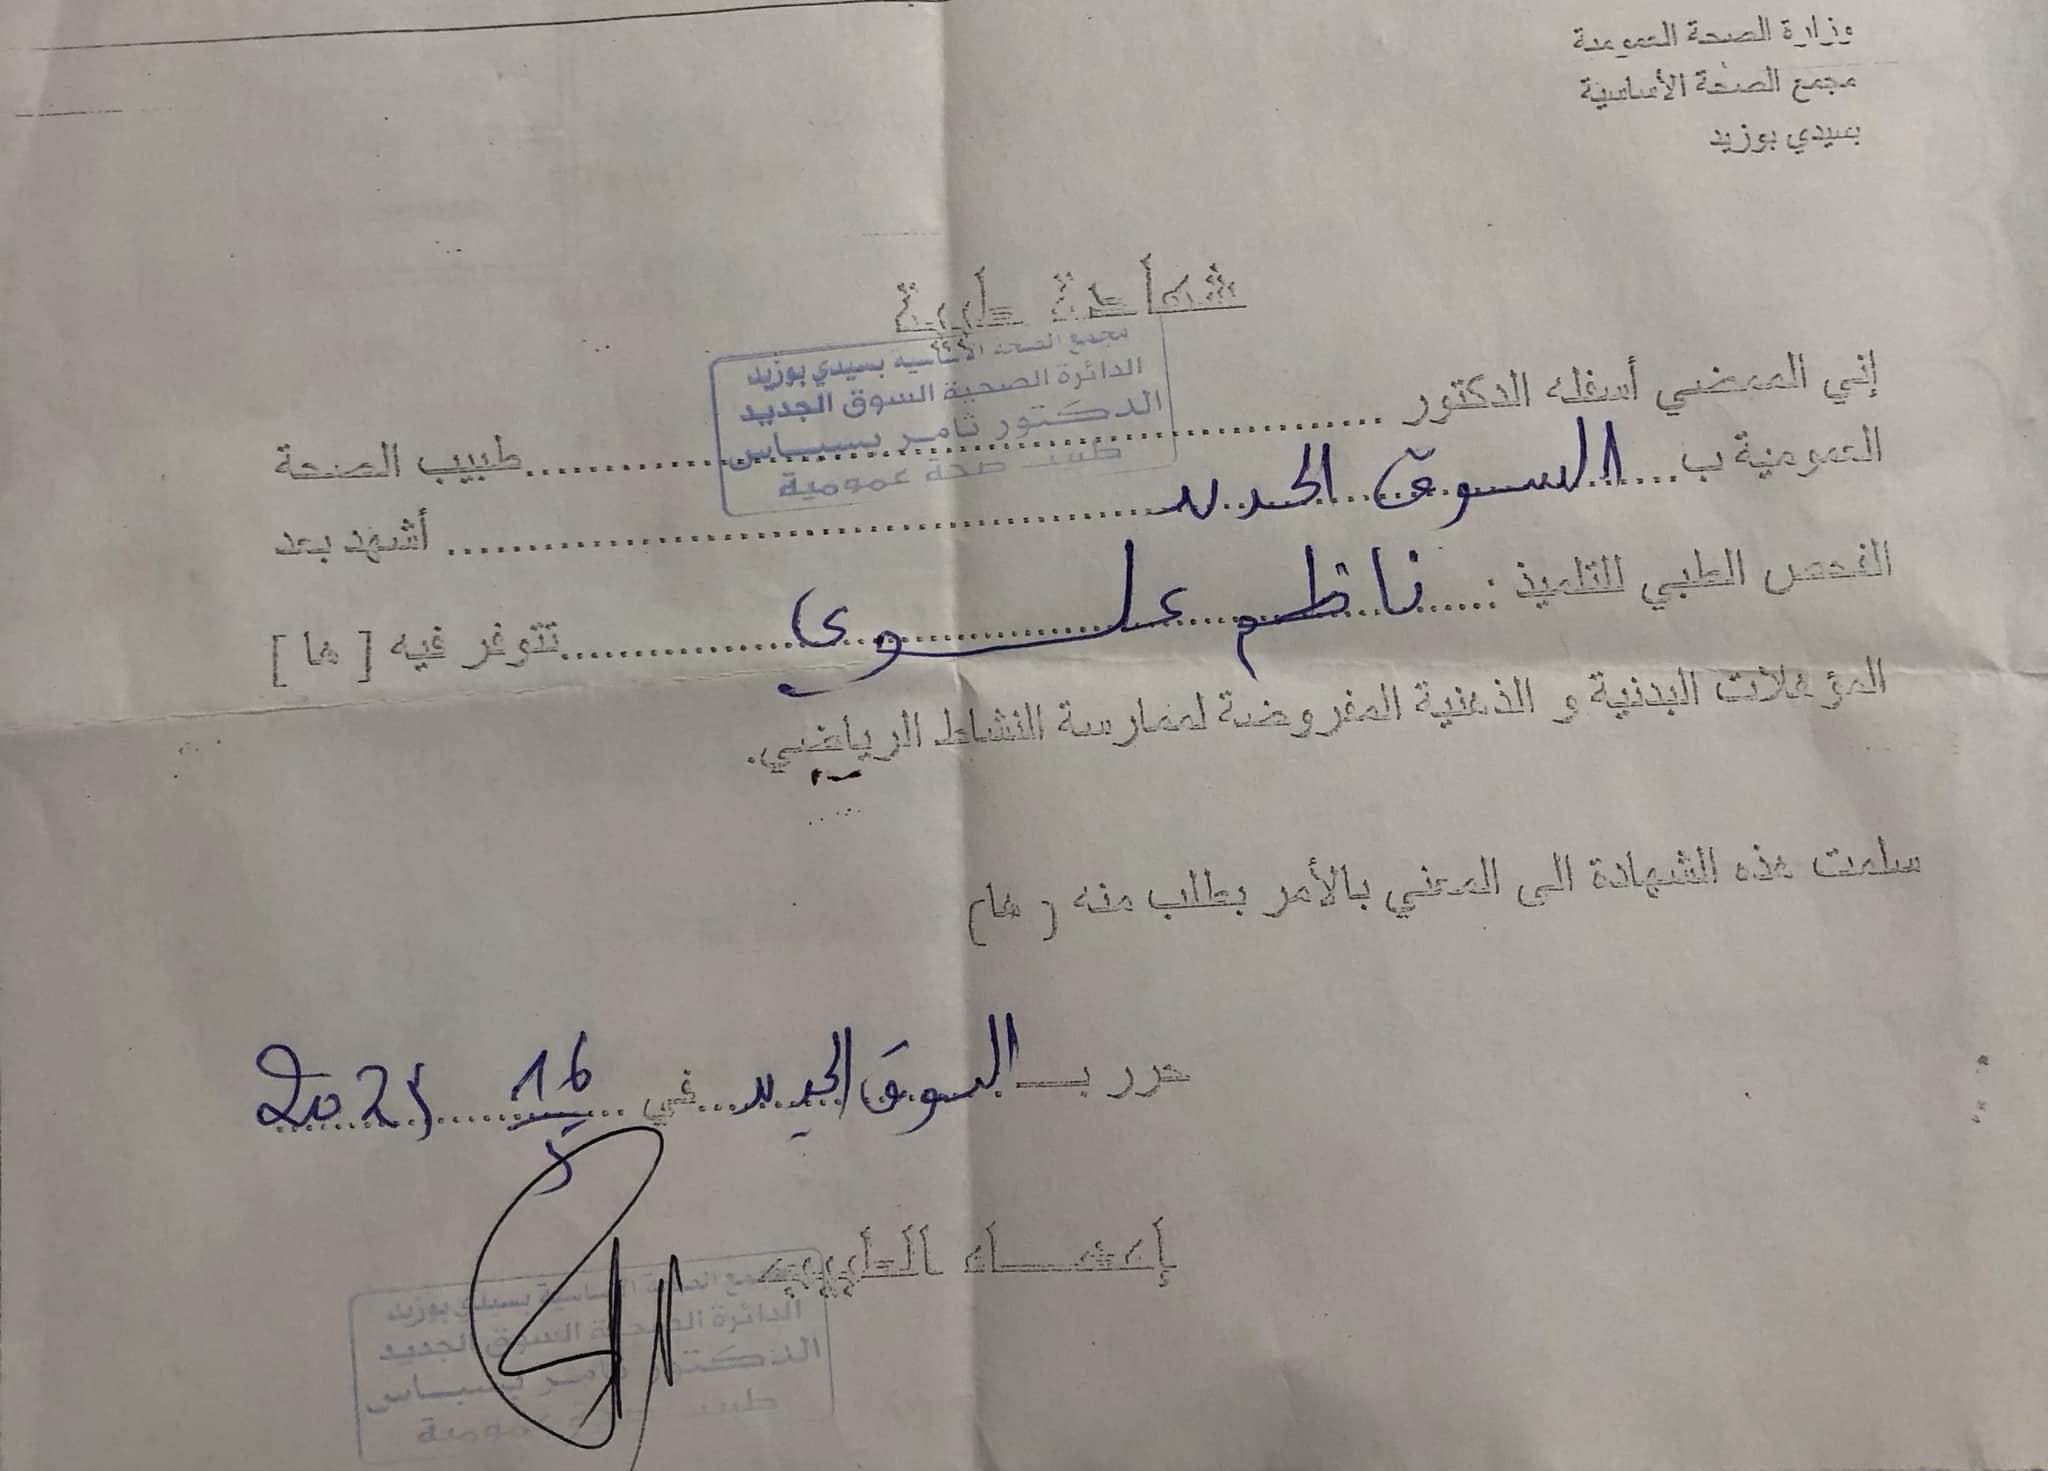 وزارة الصحة العمومية
مجمع الصحة الأساسية
بسيدي بوزيد
شهادة طبية
مجمع الصحة الأساسية بسيدي بوزيد
الدائرة الصحية السوق الجديد
الدكتور ثامر بسباس
طبيب صحة عمومية
إني الممضي أسفله الدكتور .................... طبيب الصحة
العمومية ب.... السوق الجديد .................... أشهد بعد
الفحص الطبي للتلميذ : .... ناظم علوي .................... تتوفر فيه [ ها ]
المؤهلات البدنية و الذهنية المفروضة لممارسة النشاط الرياضي.
سلمت هذه الشهادة الى المعني بالأمر بطلب منه ( ها)
حرر بـ السوق الجديد في 16/5 2025
إمضاء الطبيب
مجمع الصحة الأساسية بسيدي بوزيد
الدائرة الصحية السوق الجديد
الدكتور ثامر بسباس
طبيب صحة عمومية